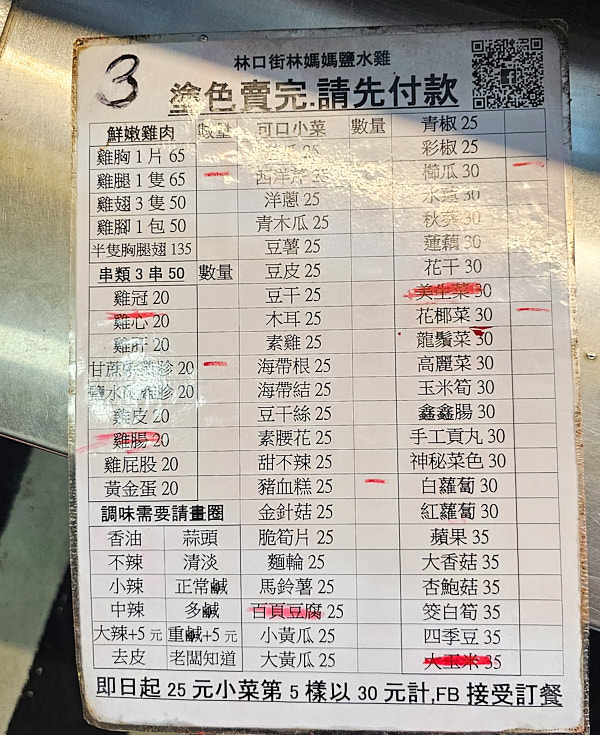 3
林口街林媽媽鹽水雞
塗色賣完.請先付款
鮮嫩雞肉 數量
雞胸 1 片 65
雞腿 1 隻 65
雞翅 3 隻 50
雞腳 1 包 50
半隻胸腿翅 135
串類 3 串 50 數量
雞冠 20
雞心 20
雞肝 20
甘蔗 胗 20
鹽水 胗 20
雞皮 20
雞腸 20
雞屁股 20
黃金蛋 20
調味需要請畫圈
香油 蒜頭
不辣 清淡
小辣 正常鹹
中辣 多鹹
大辣+5 元 重鹹+5 元
去皮 老闆知道
可口小菜 數量
25
西洋芹 25
洋蔥 25
青木瓜 25
豆薯 25
豆皮 25
豆干 25
木耳 25
素雞 25
海帶根 25
海帶結 25
豆干絲 25
素腰花 25
甜不辣 25
豬血糕 25
金針菇 25
脆筍片 25
麵輪 25
馬鈴薯 25
百頁豆腐 25
小黃瓜 25
大黃瓜 25
青椒 25
彩椒 25
櫛瓜 30
水蓮 30
秋葵 30
蓮藕 30
花干 30
美生菜 30
花椰菜 30
龍鬚菜 30
高麗菜 30
玉米筍 30
鑫鑫腸 30
手工貢丸 30
神秘菜色 30
白蘿蔔 30
紅蘿蔔 30
蘋果 35
大香菇 35
杏鮑菇 35
筊白筍 35
四季豆 35
大玉米 35
即日起 25 元小菜第 5 樣以 30 元計,FB 接受訂餐